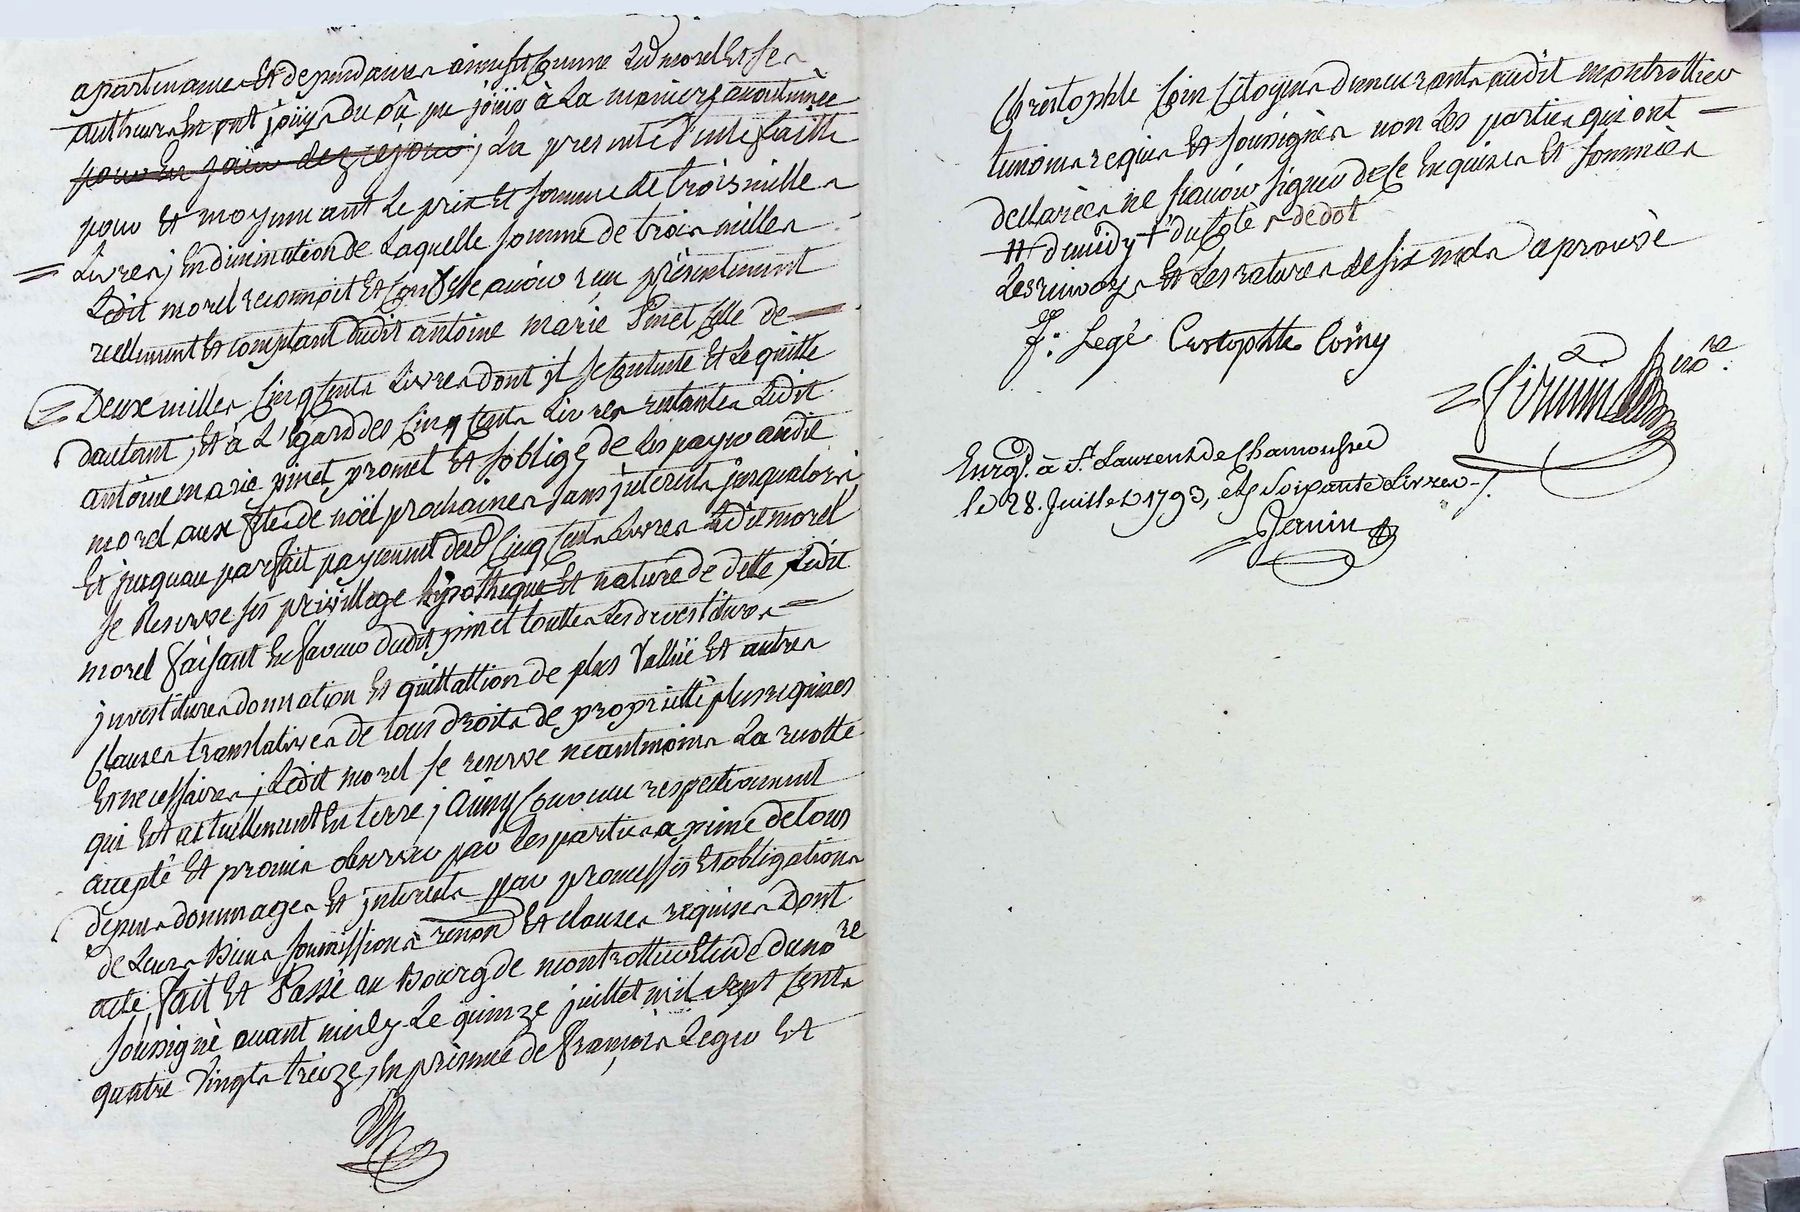 apartenances Et dependances ainsy Comme Led morel Et Ses
autheurs En ont joüÿs du où pu joüir à La maniere acoutumée
pour En faire dez ce jour; La presente Vente faitte
pour Et moyennant Le prix Et somme de trois milles
Livres; En diminution de Laquelle somme de trois milles
Ledit morel reconnoit Et Confesse avoir reçu présentement
reellement Et comptant dudit antoine marie pinet Celle de
Deux milles Cinq Cents Livres dont jl se Contente Et Le quitte
dautant, Et à L'Égard des Cinq Cents Livres restantes Ledit
antoine marie pinet promet Et soblige de Les payer audit
morel aux fetes de noël prochaines sans jnterests jusqualors,
Et jusquau parfait payement desd Cinq Cents Livres Ledit morel
se Reserve ses privillege hÿpotheque Et nature de dette, Ledit
morel faisant En faveur dudit pinet touttes Les devestitures
jnvestitures donnation Et quittattion de plus Vallüe Et autres
Clauses translatives de tous droits de propriétté plus requises
Et necessaires; Ledit morel se reserve neantmoins La recolte
qui Est actuellement En terre; ainsy Convenu respectivement
accepté Et promis observer par Les parties a peine de tous
depens dommages Et jnterests par promesses Et obligations
de Leurs Biens soumissions renond Et clauses requises Dont
acte, fait Et Passé au Bourg de montrottier Etude du nore
soussigné avant midy Le quinze juillet mil sept Cents
quatre Vingts treize, En présence de françois Leger Et
Christophle Coin Citoyens demeurants audit montrottier
temoins requis Et soussignés non Les parties qui ont
declarées ne sçavoir signer de Ce Enquises Et sommées
# demidy + du Coté s de dot
Les renvoys Et Les ratures de six mots aprouvè
f. Legé Cristophle Coiny
Firmin nore.
Enrgd. à St. Laurent de Chamousset
le 28. Juillet 1793, reçu Soixante Livres
Janin